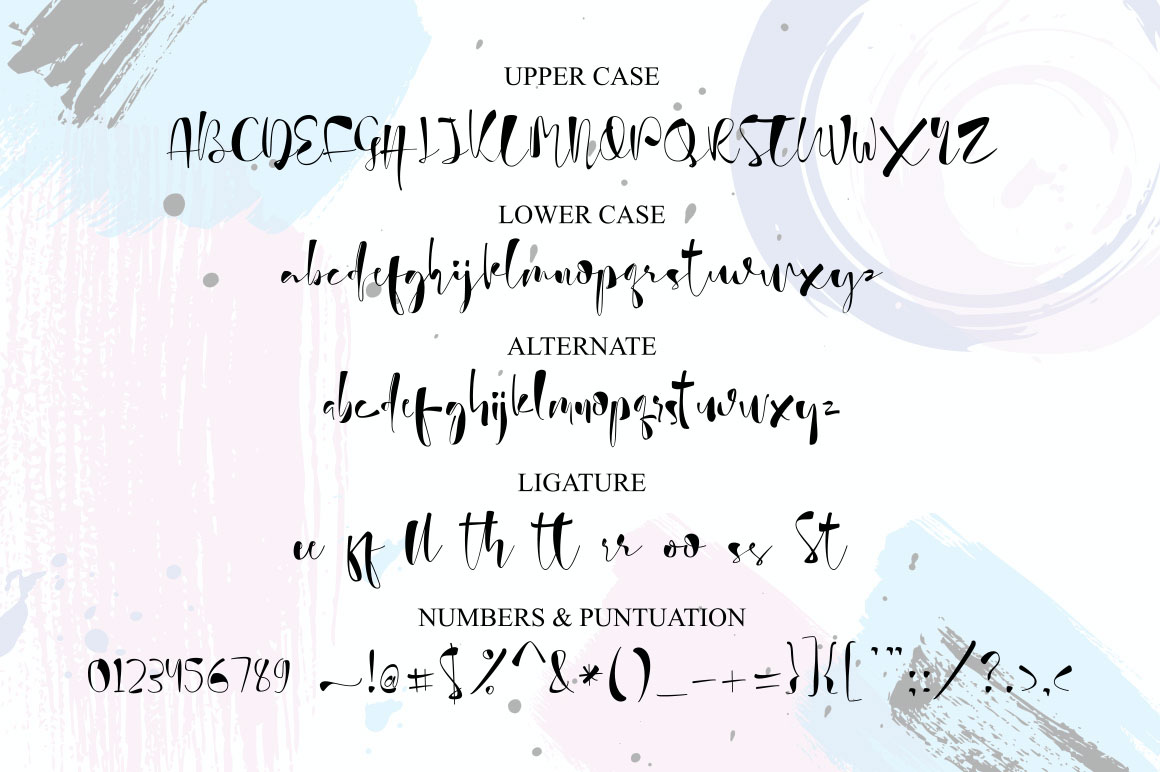 UPPER CASE
ABCDEFGHIJKLMNOPQRSTUVWXYZ
LOWER CASE
abcdefghijklmnopqrstuvwxyz
ALTERNATE
abcdefghijklmnopqrstuvwxyz
LIGATURE
ee ff ll th tt rr oo ss St
NUMBERS & PUNTUATION
0123456789 ~!@#$%^&*()_-+=}]{['"";:/?.>,<